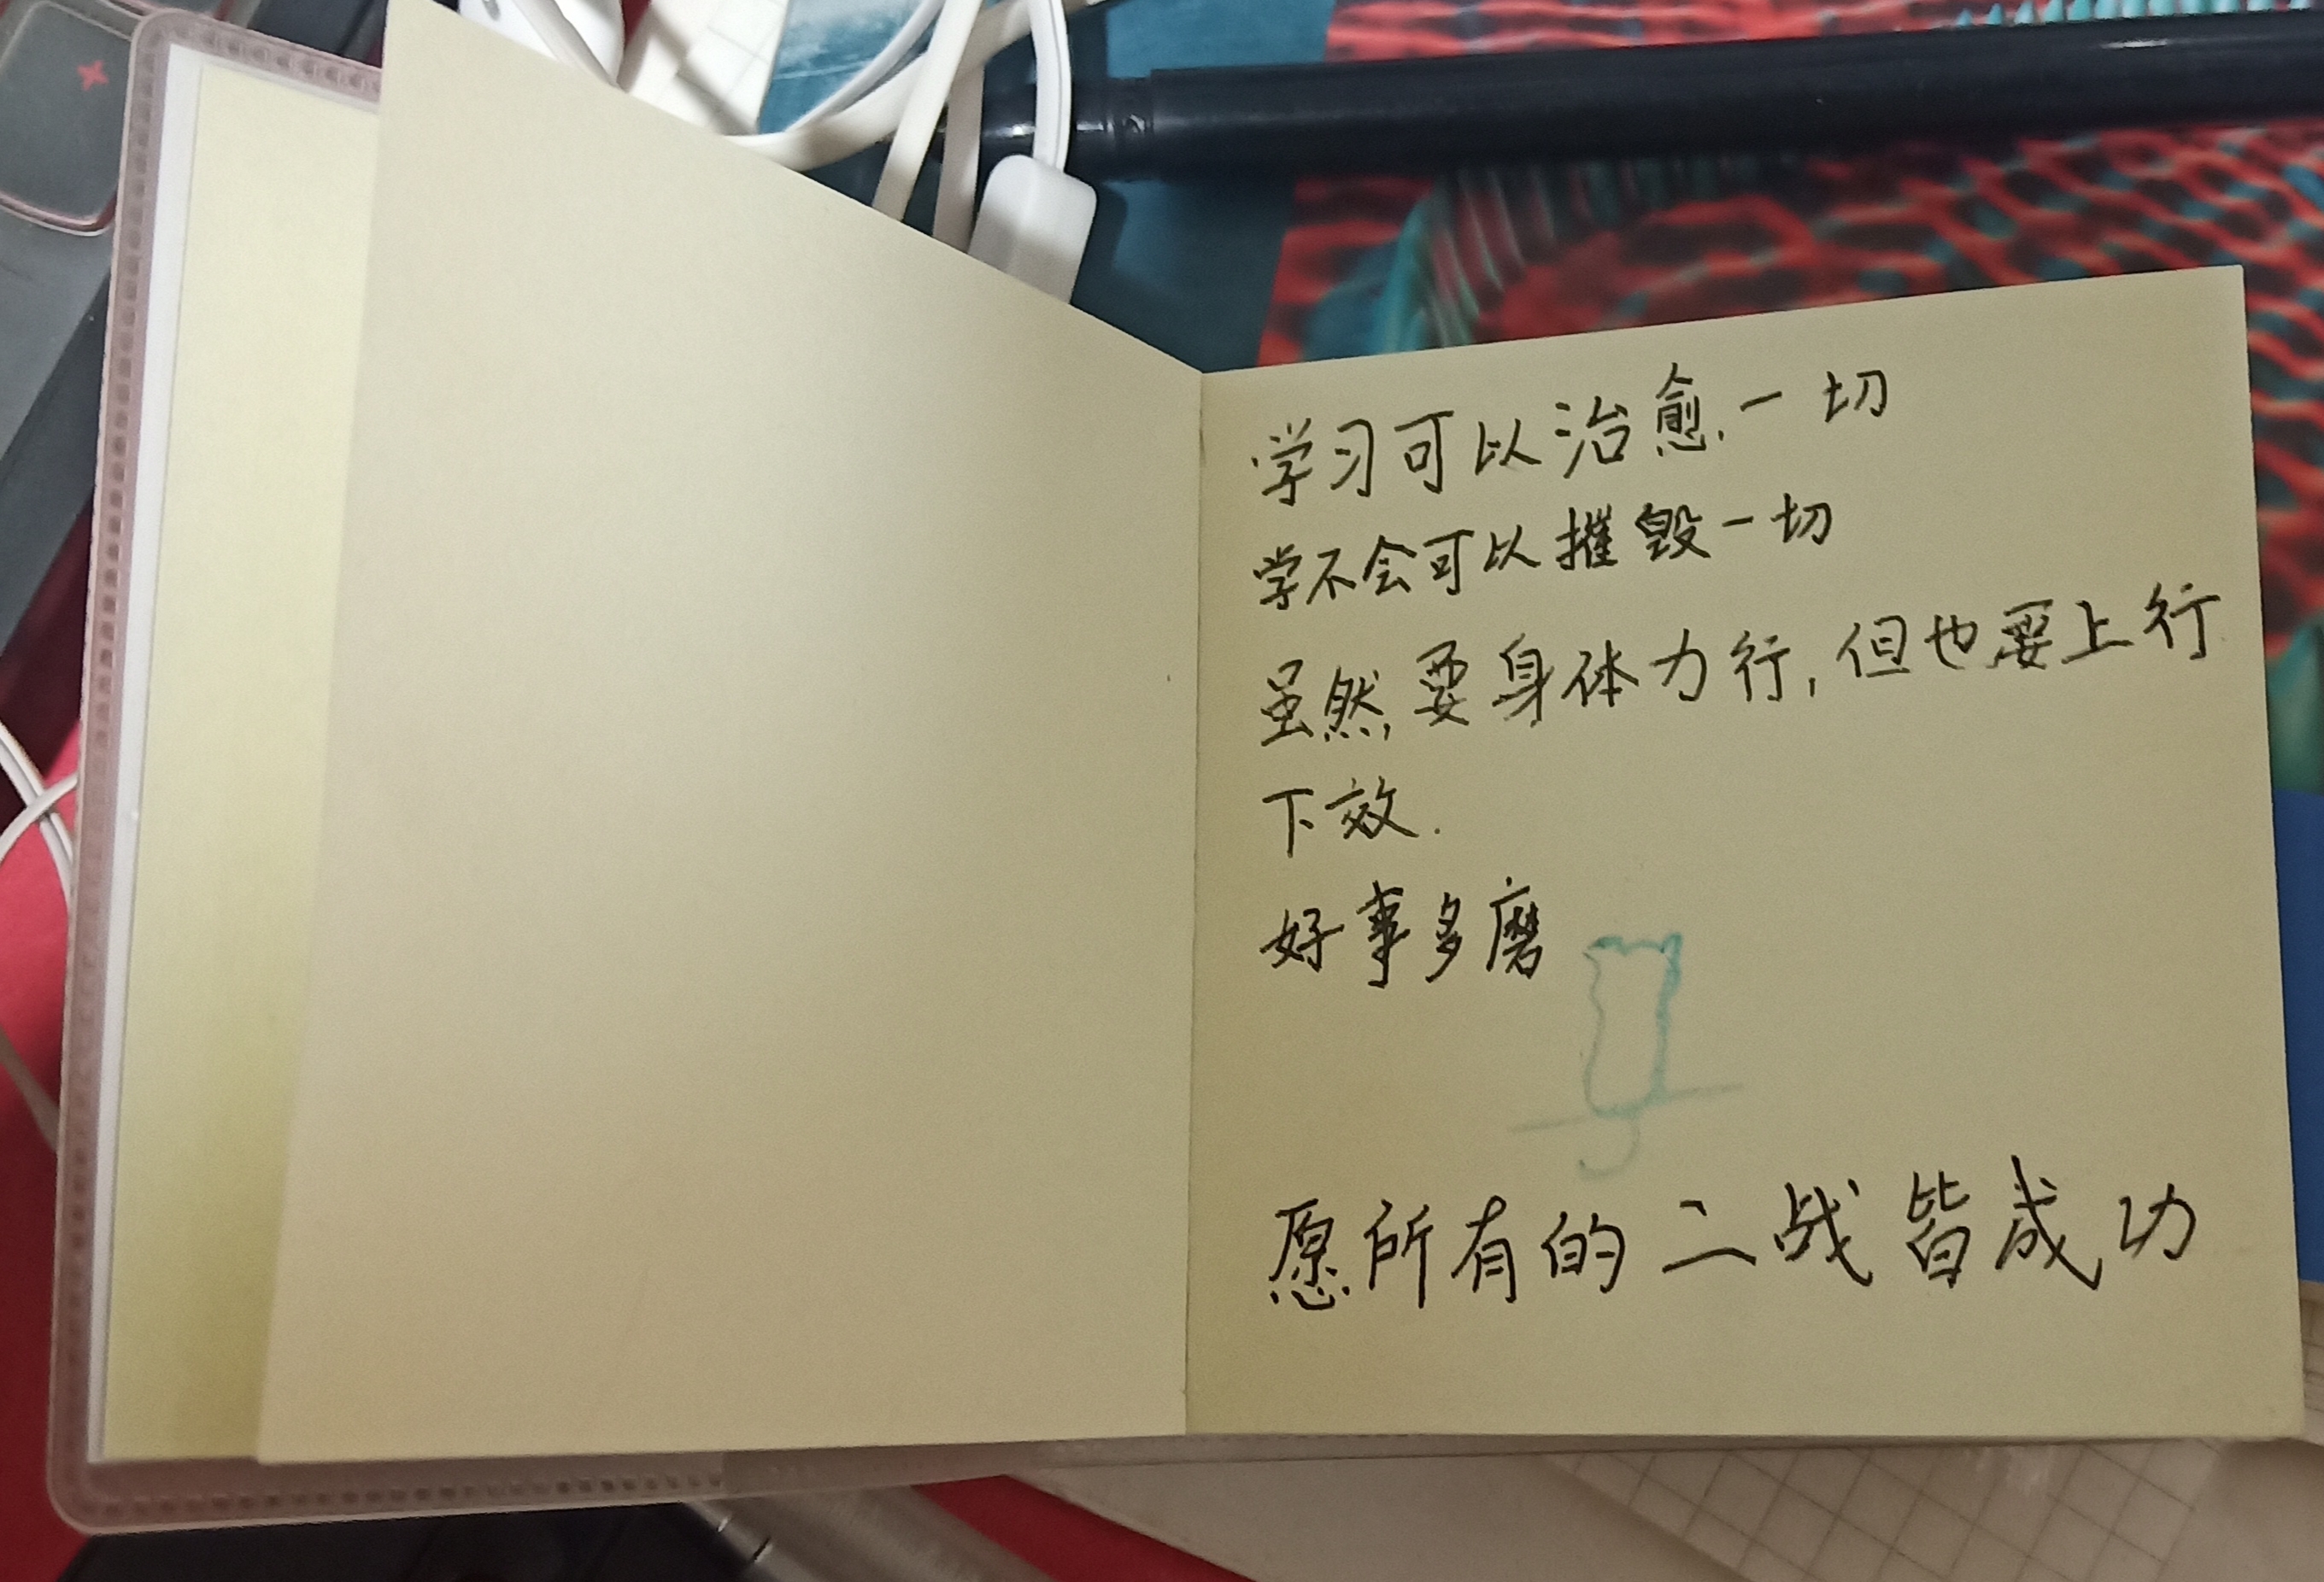 学习可以治愈一切
学不会可以摧毁一切
虽然要身体力行,但也要上行
下效.
好事多磨
愿所有的二战皆成功